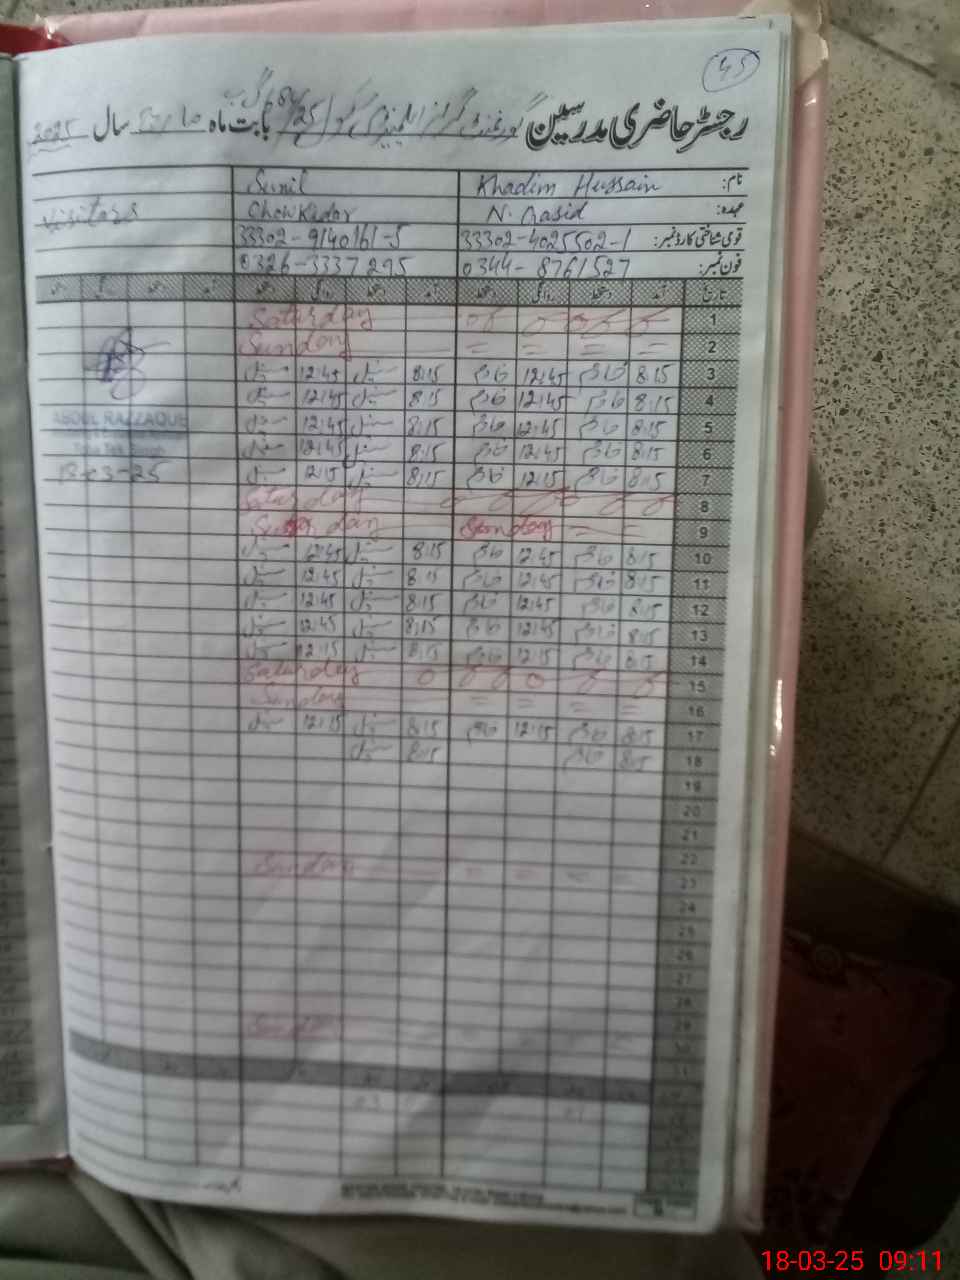 45
رجسٹر حاضری مدرسین گورنمنٹ گرلز ایلیمنٹری سکول بابت ماہ مارچ سال 2025
نام: Khadim Hussain Sunil
عہدہ: N. Qasid Chowkidar Visitors
قومی شناختی کارڈ نمبر: 33302-4025502-1 33302-9140161-5
فون نمبر: 0344-8761527 0326-3337295
تاریخ آمد دستخط روانگی دستخط آمد دستخط روانگی دستخط آمد دستخط روانگی دستخط
1 Saturday
2 = = = = Sunday
3 8:15 خادم 12:45 خادم 8:15 سنیل 12:45 سنیل
4 8:15 خادم 12:45 خادم 8:15 سنیل 12:45 سنیل
5 8:15 خادم 12:45 خادم 8:15 سنیل 12:45 سنیل
6 8:15 خادم 12:45 خادم 8:15 سنیل 12:45 سنیل
7 8:15 خادم 12:15 خادم 8:15 سنیل 12:15 سنیل
8 Saturday
9 Sunday Sunday
10 8:15 خادم 12:45 خادم 8:15 سنیل 12:45 سنیل
11 8:15 خادم 12:45 خادم 8:15 سنیل 12:45 سنیل
12 8:15 خادم 12:45 خادم 8:15 سنیل 12:45 سنیل
13 8:15 خادم 12:45 خادم 8:15 سنیل 12:45 سنیل
14 8:15 خادم 12:15 خادم 8:15 سنیل 12:15 سنیل
15 Saturday
16 = = = = Sunday
17 8:15 خادم 12:15 خادم 8:15 سنیل 12:15 سنیل
18 8:15 خادم 8:15 سنیل
19
20
21
22
23 Sunday
24
25
26
27
28
29
30
31
ABDUL RAZZAQUE
18-03-25
18-03-25 09:11